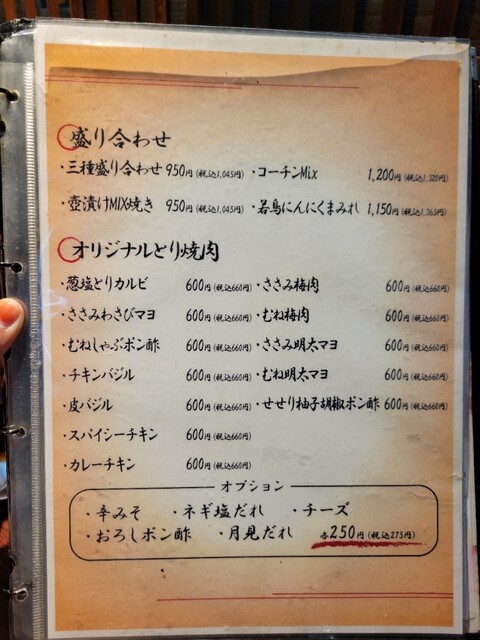 盛り合わせ
・三種盛り合わせ 950円(税込1,045円) ・コーチンMix 1,200円(税込1,320円)
・壺漬けMIX焼き 950円(税込1,045円) ・若鳥にんにくまみれ 1,150円(税込1,265円)
オリジナルとり焼肉
・葱塩とりカルビ 600円(税込660円) ・ささみ梅肉 600円(税込660円)
・ささみわさびマヨ 600円(税込660円) ・むね梅肉 600円(税込660円)
・むねしゃぶポン酢 600円(税込660円) ・ささみ明太マヨ 600円(税込660円)
・チキンバジル 600円(税込660円) ・むね明太マヨ 600円(税込660円)
・皮バジル 600円(税込660円) ・せせり柚子胡椒ポン酢 600円(税込660円)
・スパイシーチキン 600円(税込660円)
・カレーチキン 600円(税込660円)
オプション
・辛みそ ・ネギ塩だれ ・チーズ
・おろしポン酢 ・月見だれ 各250円(税込275円)